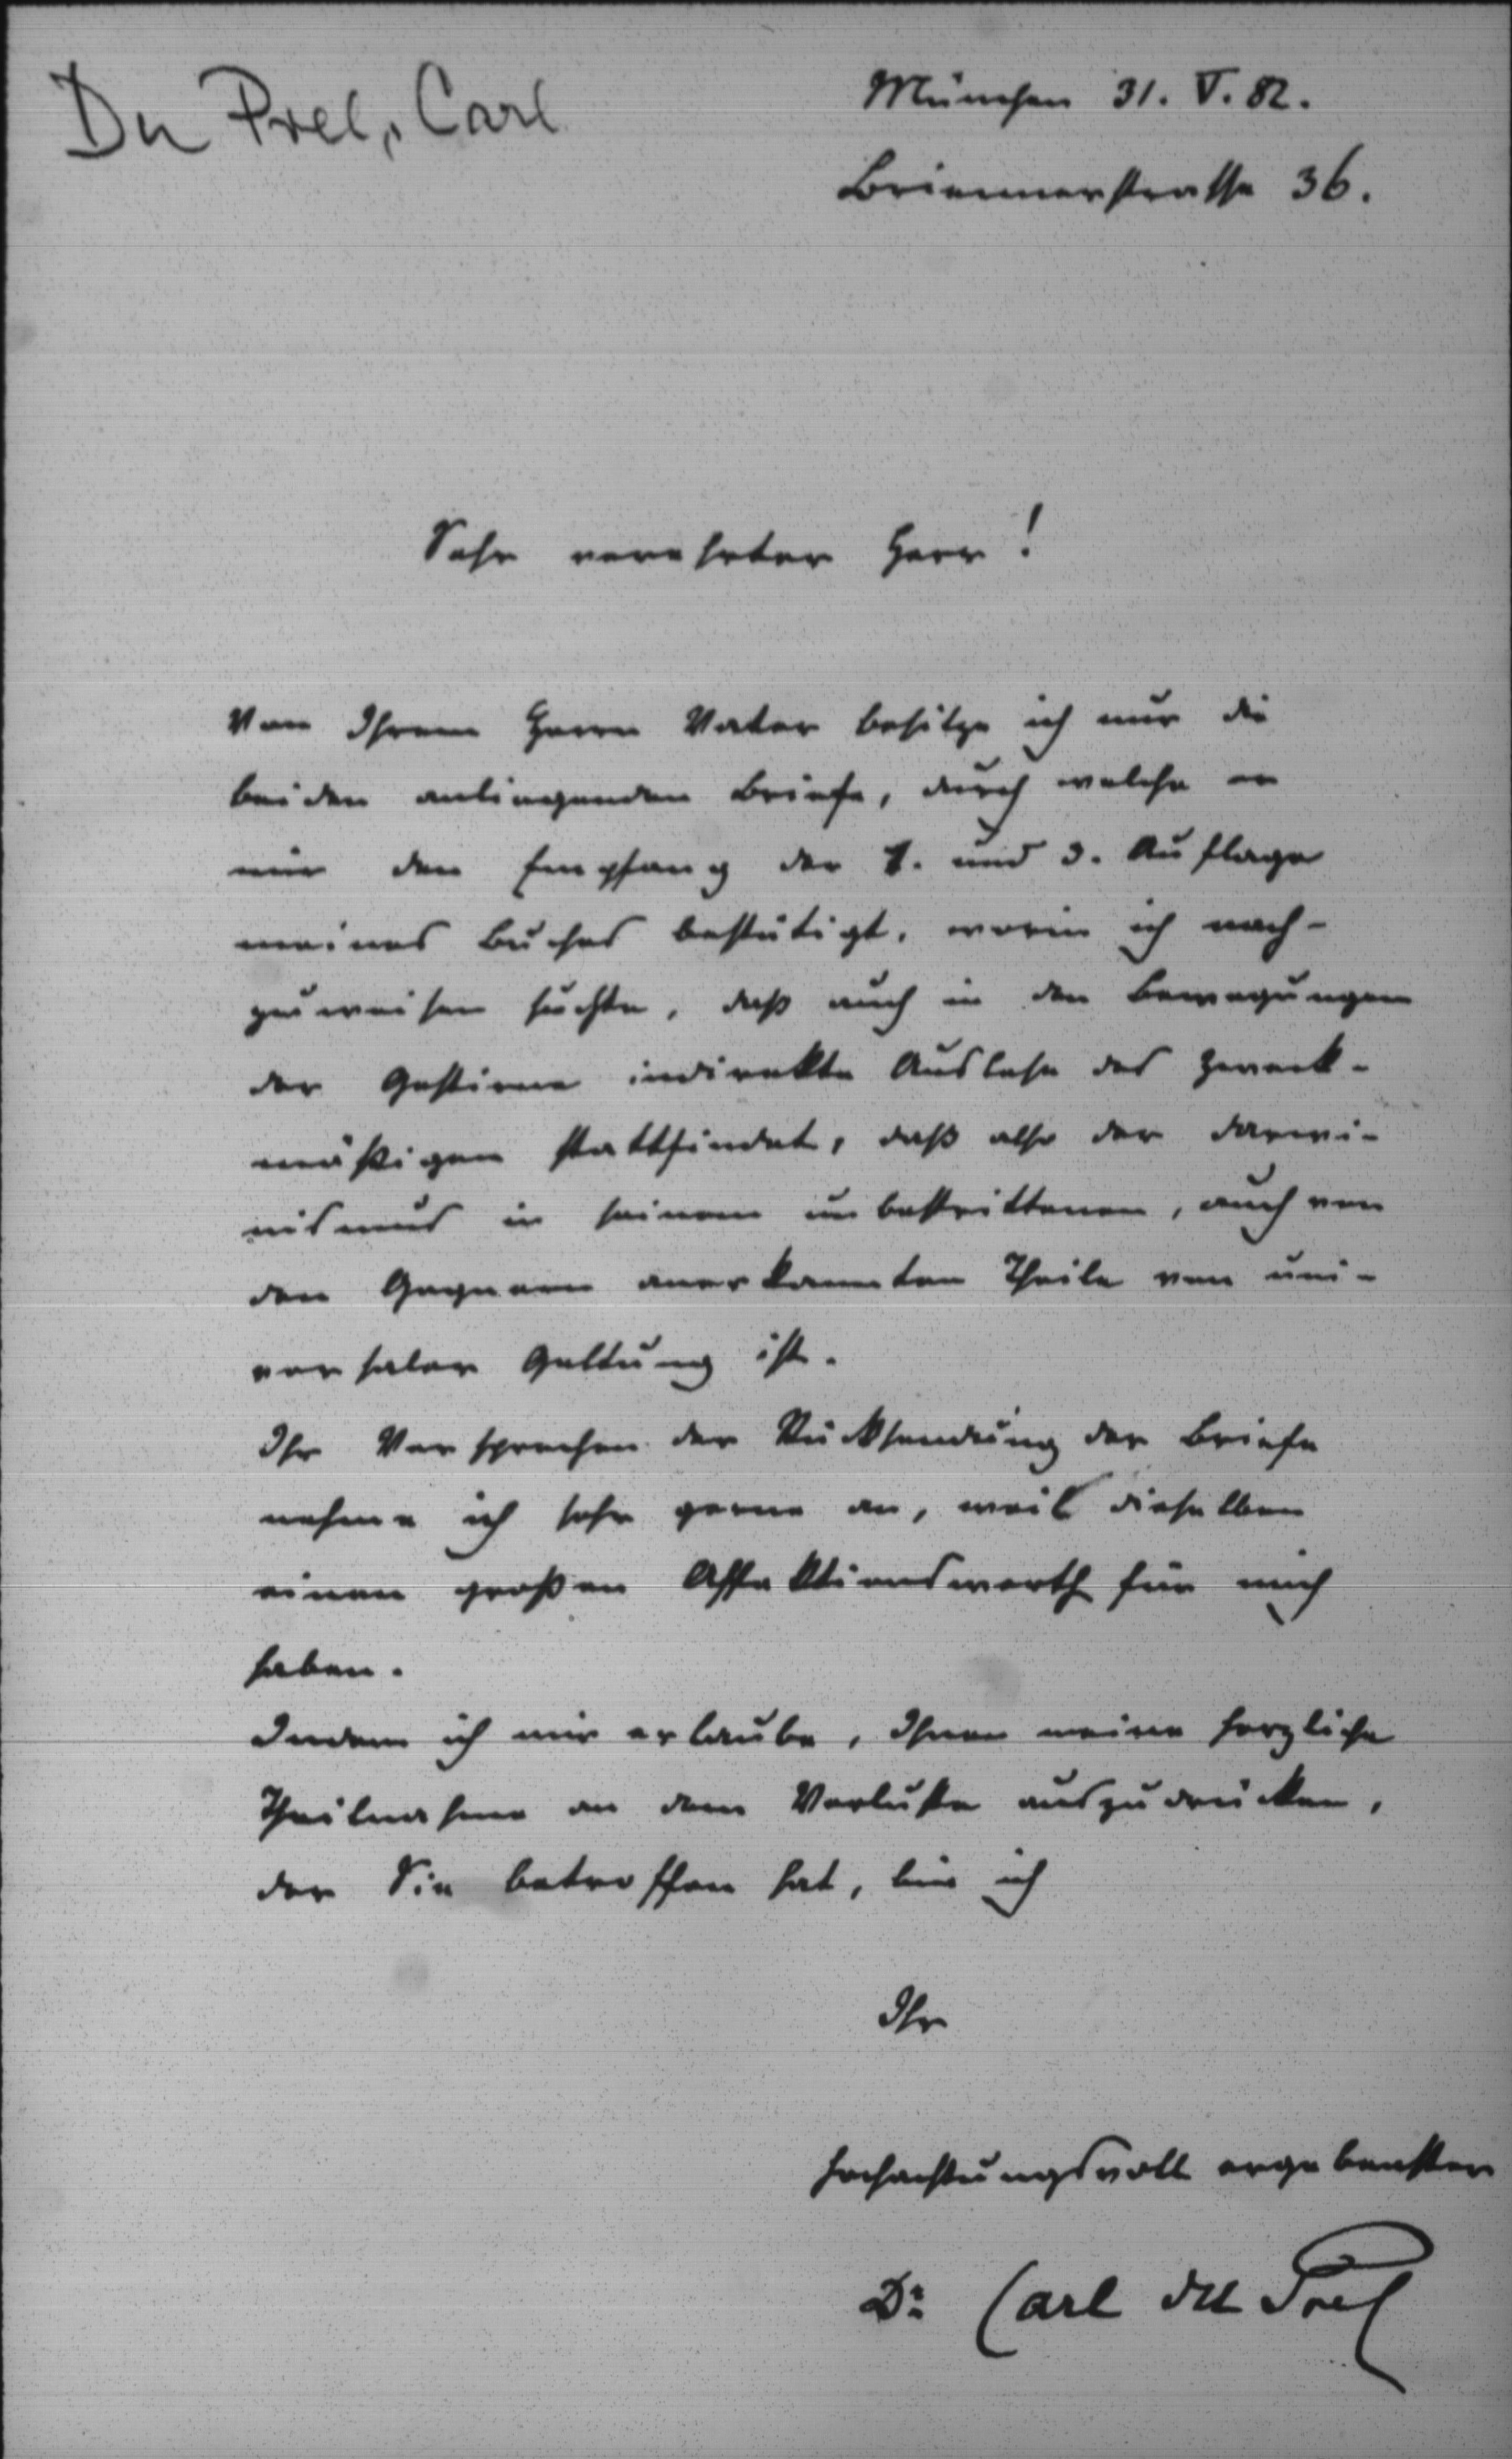 Du Prel, Carl
München 31. V. 82.
Briennerstrasse 36.
Sehr verehrter Herr!
Von Ihrem Herrn Vater besitze ich nur die
beiden anliegenden Briefe, durch welche er
mir den Empfang der 1. und 3. Auflage
meines Buches bestätigt, worin ich nach-
zuweisen suchte, daß auch in den Bewegungen
der Gestirne indirekte Auslese des Zweck-
mäßigen stattfindet, daß also der Darwi-
nismus in seinem unbestrittenen, auch von
den Gegnern anerkannten Theile von uni-
versaler Geltung ist.
Ihr Versprechen der Rücksendung der Briefe
nehme ich sehr gerne an, weil dieselben
einen großen Affektionswerth für mich
haben.
Indem ich mir erlaube, Ihnen meine herzliche
Theilnahme an dem Verluste auszudrücken,
der Sie betroffen hat, bin ich
Ihr
hochachtungsvoll ergebenster
Dr Carl du Prel